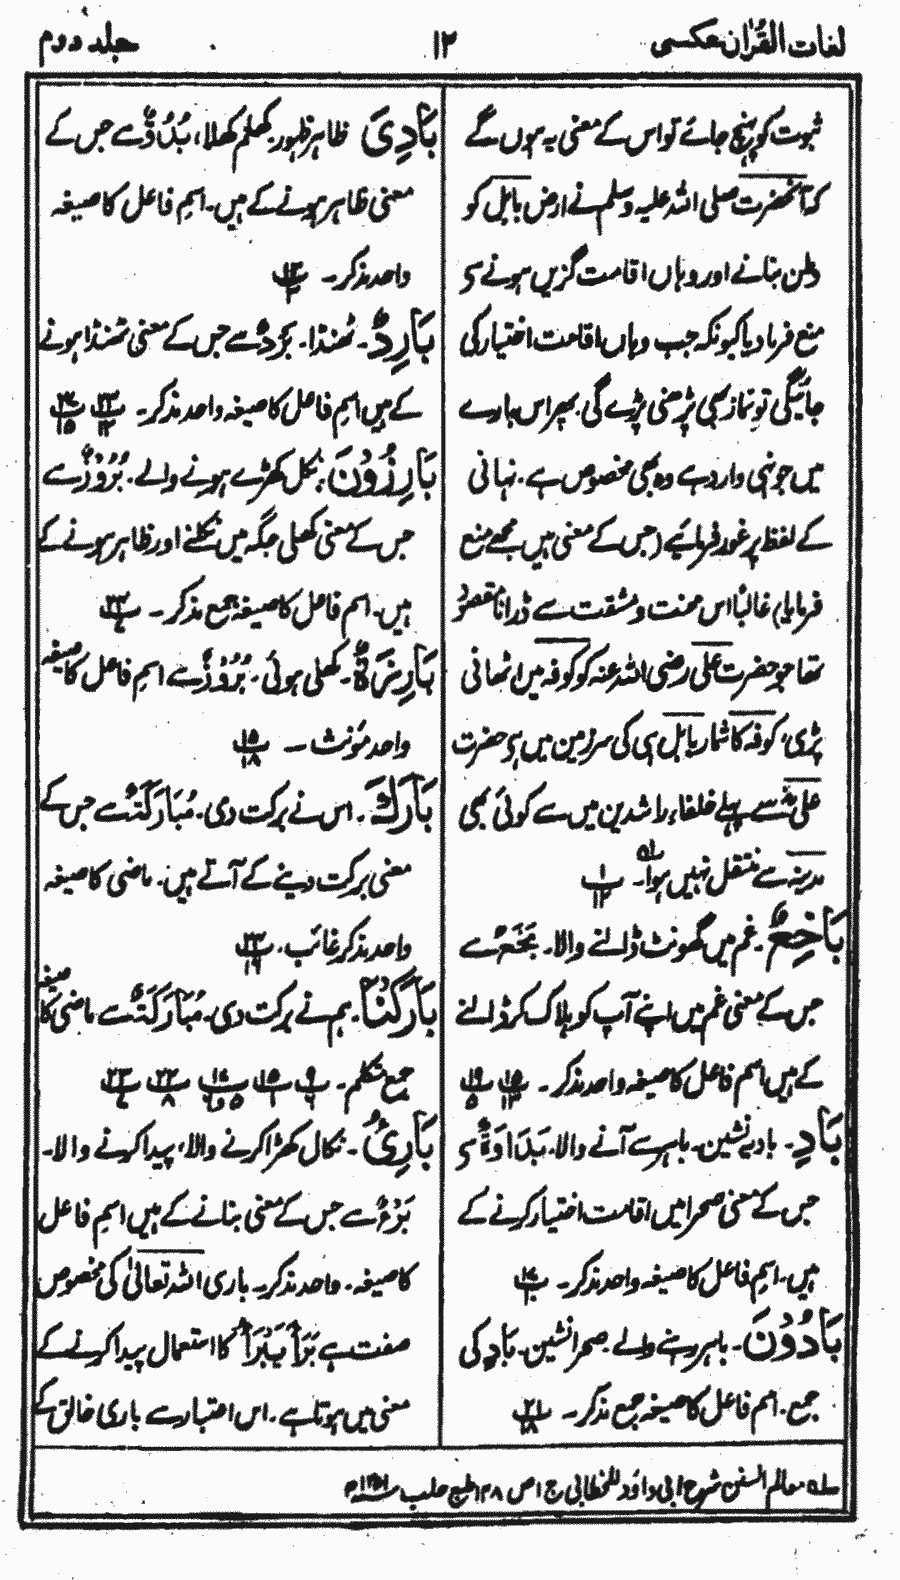 لغات القرآن عکسی
۱۲
جلد دوم
ثبوت کو پہنچ جائے تو اس کے معنی یہ ہوں گے
کہ آنحضرت صلی اللہ علیہ وسلم نے ارض بابل کو
وطن بنانے اور وہاں اقامت گزیں ہونے سے
منع فرمادیا کیونکہ جب وہاں اقامت اختیار کی
جائیگی تو نماز بھی پڑھنی پڑے گی۔ پھر اس بارے
میں جو نہی وارد ہے وہ بھی مخصوص ہے۔ نہانی
کے لفظ پر غور فرمائیے (جس کے معنی ہیں مجھے منع
فرمایا) غالباً اس محنت و مشقت سے ڈرانا مقصود
تھا جو حضرت علی رضی اللہ عنہ کو کوفہ میں اٹھانی
پڑی، کوفہ کا شمار بابل ہی کی سرزمین میں ہے حضرت
علیؓ سے پہلے خلفاء راشدین میں سے کوئی بھی
مدینہ سے منتقل نہیں ہوا۔ ۱؎ ۱/۱۲
بَاخِعٌ۔ غم میں گھونٹ ڈالنے والا۔ بَخَعَ سے
جس کے معنی غم میں اپنے آپ کو ہلاک کر ڈالنے
کے ہیں اسم فاعل کا صیغہ واحد مذکر۔ ۱۵/۱۳ ۱۹/۵
بَادٍ۔ بادیہ نشین۔ باہر سے آنے والا۔ بَدَاوَۃٌ سے
جس کے معنی صحرا میں اقامت اختیار کرنے کے
ہیں۔ اسم فاعل کا صیغہ واحد مذکر۔ ۱۷/۱۰
بَادُوْنَ۔ باہر رہنے والے۔ صحرا نشین۔ بَادٍ کی
جمع۔ اسم فاعل کا صیغہ جمع مذکر۔ ۲۱/۱۸
بَادِیَ ظاہر ظہور۔ کھلم کھلا، بُدُوٌّ سے جس کے
معنی ظاہر ہونے کے ہیں۔ اسم فاعل کا صیغہ
واحد مذکر۔ ۱۲/۳
بَارِدٌ۔ ٹھنڈا۔ بَرْدٌ سے جس کے معنی ٹھنڈا ہونے
کے ہیں اسم فاعل کا صیغہ واحد مذکر۔ ۲۳/۱۲ ۲۷/۱۵
بَارِزُوْنَ۔ نکل کھڑے ہونے والے۔ بُرُوْزٌ سے
جس کے معنی کھلی جگہ میں نکلنے اور ظاہر ہونے کے
ہیں۔ اسم فاعل کا صیغہ جمع مذکر۔ ۲۴/۷
بَارِزَۃٌ۔ کھلی ہوئی۔ بُرُوْزٌ سے اسم فاعل کا صیغہ
واحد مؤنث۔ ۱۵/۱۸
بَارَكَ۔ اس نے برکت دی۔ مُبَارَكَۃٌ سے جس کے
معنی برکت دینے کے آتے ہیں۔ ماضی کا صیغہ
واحد مذکر غائب۔ ۲۴/۱۶
بَارَكْنَا۔ ہم نے برکت دی۔ مُبَارَكَۃٌ سے ماضی کا صیغہ
جمع متکلم۔ ۹/۶ ۱۵/۱ ۱۷/۵ و ۶ ۲۲/۸ ۲۳/۷
بَارِئٌ۔ نکال کھڑا کرنے والا، پیدا کرنے والا۔
بَرْءٌ سے جس کے معنی بنانے کے ہیں اسم فاعل
کا صیغہ۔ واحد مذکر۔ باری اللہ تعالیٰ کی مخصوص
صفت ہے بَرَأَ یَبْرَأُ کا استعمال پیدا کرنے کے
معنی میں ہوتا ہے۔ اس اعتبار سے باری خالق کے
۱؎ معالم السنن شرح ابی داؤد للخطابی ج ۱ ص ۱۴۸ طبع حلب ۱۳۵۱؁م